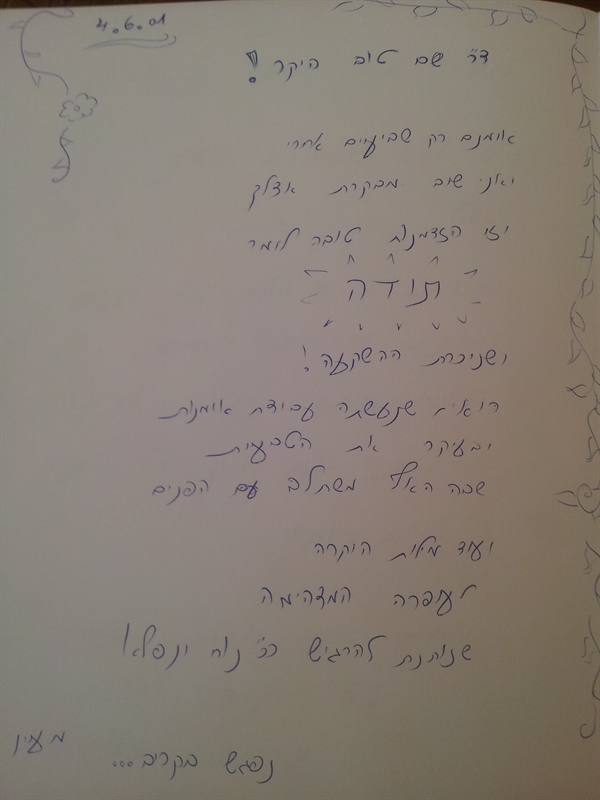 4.6.01
ד"ר שם טוב היקר!
אומנם רק שביעיים אחרי
ואני שוב מבקרת אצלך
וזו הזדמנות טובה לומר
תודה
ושניכרת ההשקעה!
רואים שנעשתה עבודת אומנות
ובעיקר את הטבעיות
שבה האף משתלב עם הפנים
ועוד מילות הוקרה
לעופרה המדהימה
שנותנת להרגיש כ"כ נוח ונפלא!
מעין
נפגש בקרוב...